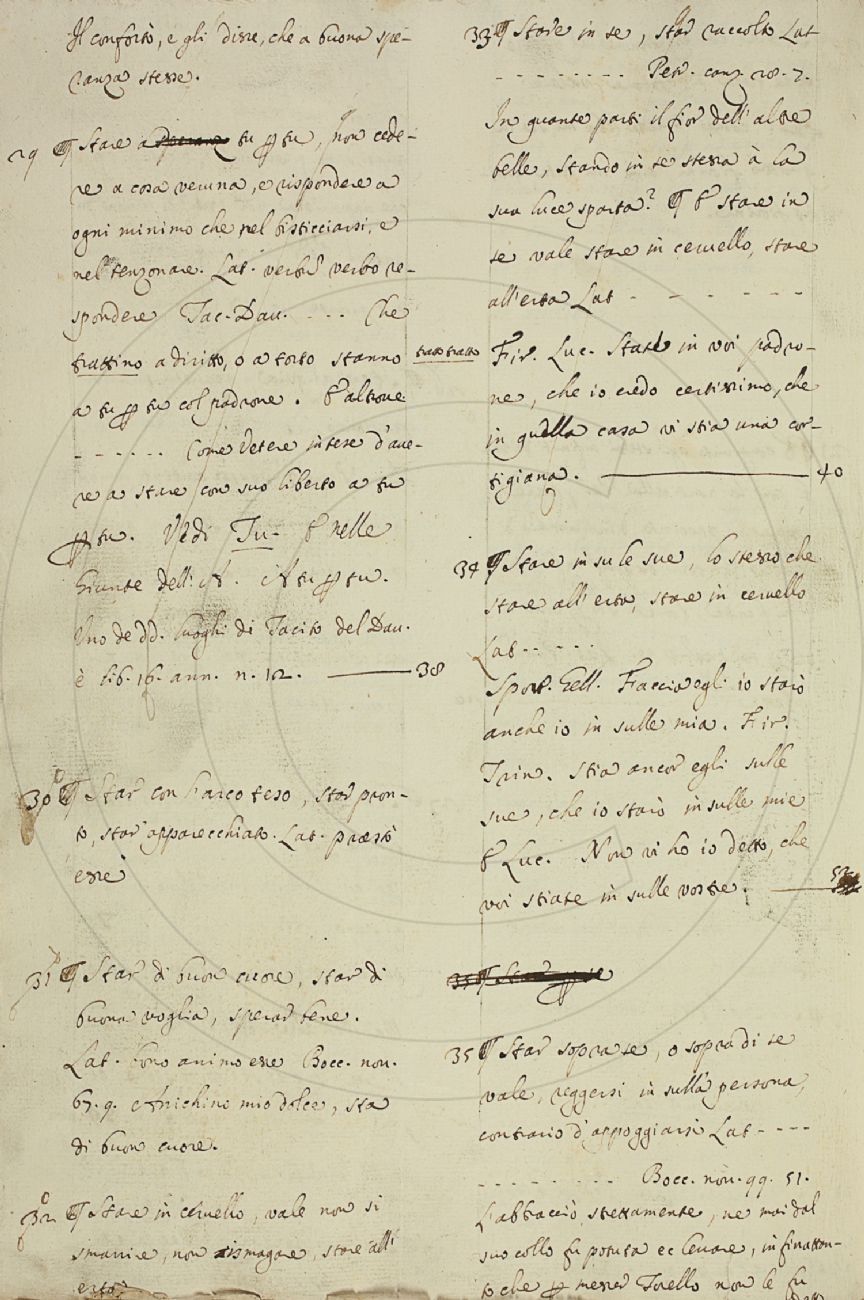 Il confortò, e gli disse, che a buona spe-
ranza stesse.
29 ¶ Stare a tu ꝑ tu, non cede-
re a cosa veruna, e rispondere a
ogni minimo che nel bisticciarsi, e
nel tenzonare. Lat. verbum verbo re-
spondere Tac. Dav. --- Che
trattino a diritto, o a torto stanno
tratto tratto
a tu ꝑ tu col padrone. E altrove
------ Come Vetere intese d'ave-
re a stare con suo liberto a tu
ꝑ tu. Vedi Tu. E nelle
Giunte dell'A. A tu ꝑ tu.
Uno de dd. luoghi di Tacito del Dav.
è lib. 16. ann. n. 12. ——— 38
30 ¶ Star con l'arco teso, star pron-
to, star apparecchiato. Lat. præsto
esse
31 ¶ Star di buon cuore, star di
buona voglia, sperar bene.
Lat. bono animo esse Bocc. nov.
67. 9. Anichino mio dolce, sta
di buon cuore.
32 ¶ Stare in cervello, vale non si
smarrire, non ismagare, stare all'
erta
33 ¶ Stare in se, star raccolto Lat
-------- Petr. canz. 28. 7.
In quante parti il fior dell'altre
belle, stando in se stessa à la
sua luce sparta? ¶ E stare in
se vale stare in cervello, stare
all'erta Lat ------
Fir. Luc. State in voi padro-
ne, che io credo certissimo, che
in quella casa vi stia una cor-
tigiana. ——— 40
34 ¶ Stare in su le sue, lo stesso che
stare all'erta, stare in cervello
Lat -----
Sport. Gell. Faccia egli io starò
anche io in sulle mia. Fir.
Trin. Stia ancor egli sulle
sue, che io starò in sulle mie
E Luc. Non vi ho io detto, che
voi stiate in sulle vostre. ——— 53
35 ¶ Star sopra se, o sopra di se
vale, reggersi in sulla persona,
contrario d'appoggiarsi Lat ----
--------- Bocc. nov. 99. 51.
L'abbracciò strettamente, ne mai dal
suo collo fu potuta ec levare, infinattan-
to che ꝑ messer Torello non le fu